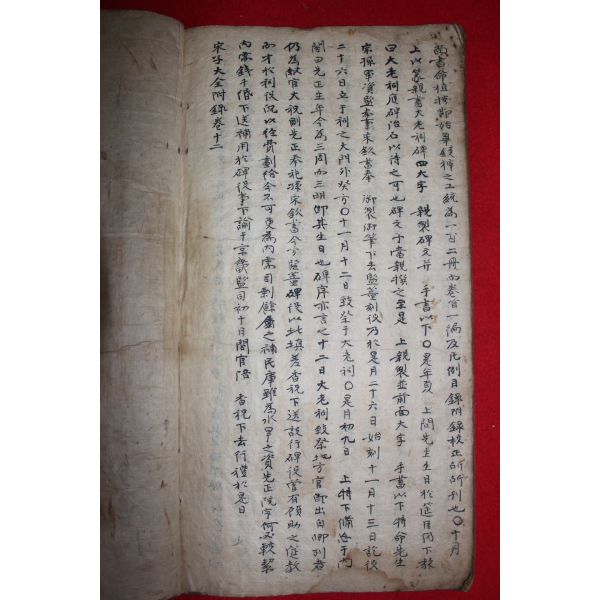 尚書命植將節始畢鋟梓之工統爲一百二冊而卷首一編及凡例目錄附錄校正所所刊也〇十月
上以篆親書大老祠碑四大字 親製碑文並 手書以下〇是年夏 上問先生生日於筵臣仍下敎
曰大老祠庭碑治石以待之可也碑文予當親撰之至是 上親製並前面大字 手書以下特命先生
宋孫軍資監奉事宋欽書奉 御製御筆下去監董刻役乃於是月二十六日始刻十一月十三日訖役
二十六日立于祠之大門外癸亥〇十一月十二日致祭于大老祠〇是月初九日 上特下備忘于內
閣曰先正生年今爲三周而三明卽其生日也碑序亦言之十二日大老祠致祭地方官卽出自卿列者
仍爲獻官大祝則先正奉祀孫宋欽書今方監董碑役以此塡差香祝下送設行碑役曾有顧助之筵敎
而才於祠役況以經費劃給今不可更爲內需司剩餘屬之補民庫雖爲水旱之資先正院宇何必較絜
內需錢千緡下送補用於碑役事下諭于京畿監司初十日閣官陪 香祝下去行禮於是日 上
宋子大全附錄卷十二